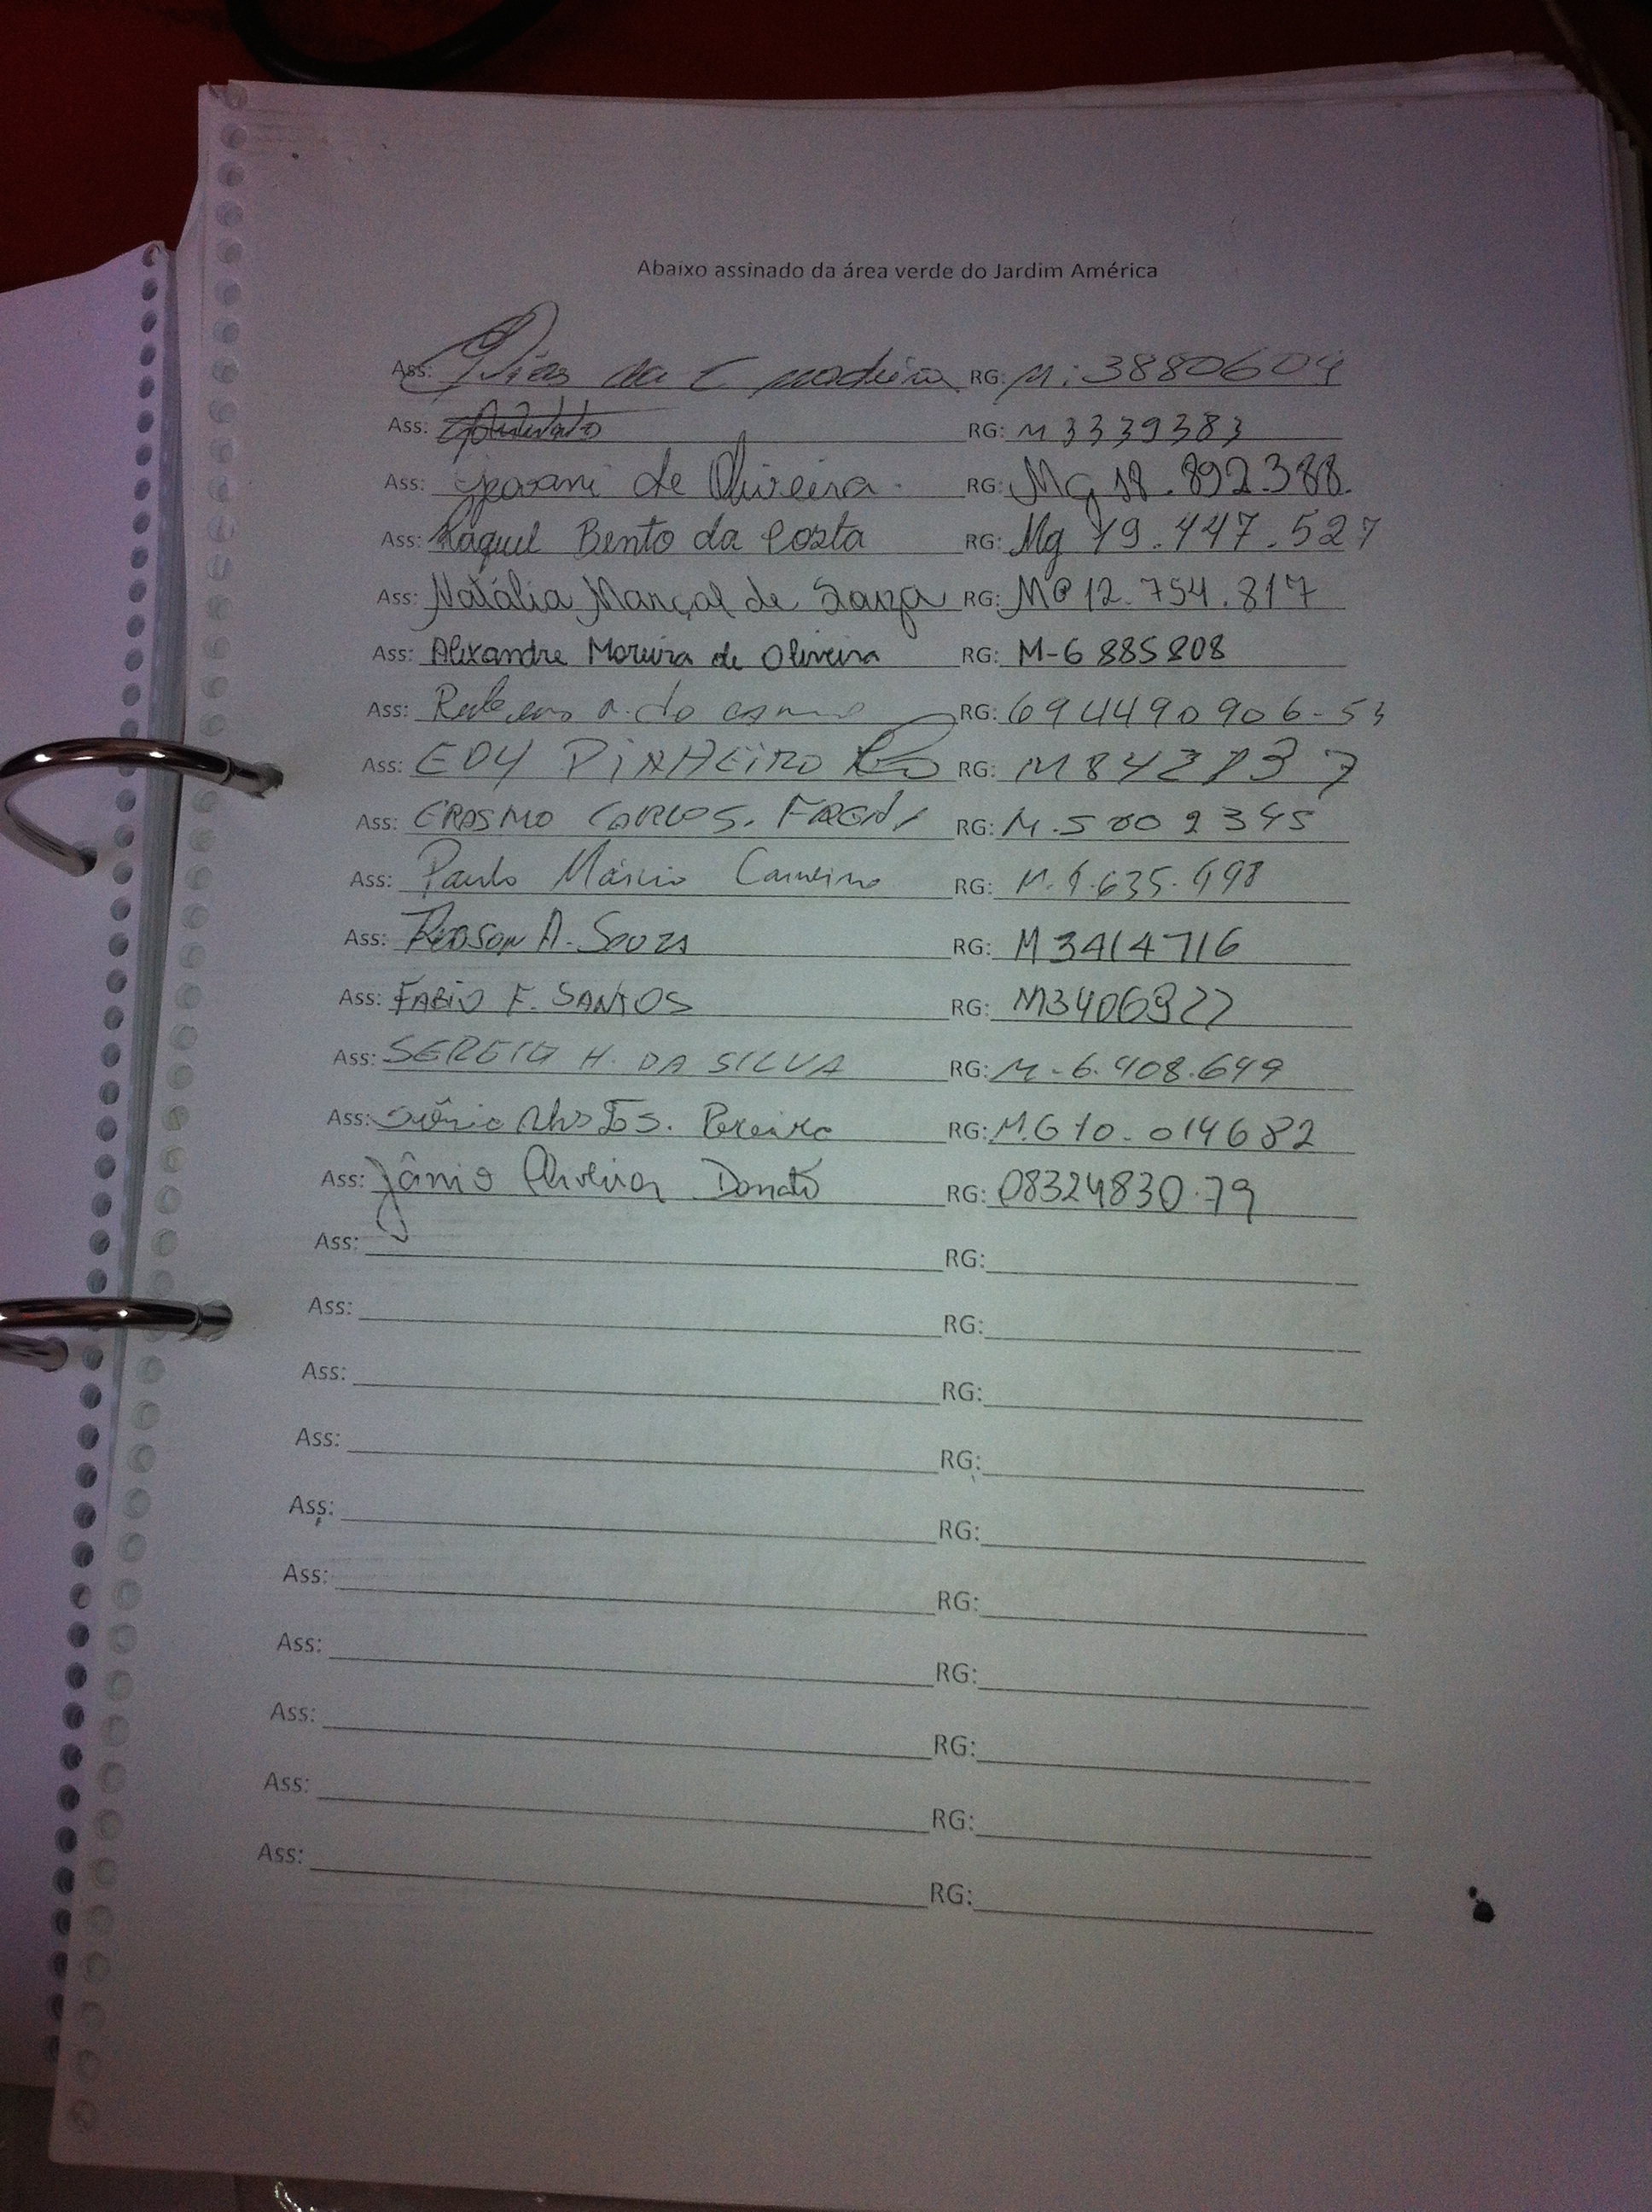 Abaixo assinado da área verde do Jardim América
Ass: Dias da C madeira RG: M:3880604
Ass: RG: M3339383
Ass: Geovani de Oliveira. RG: Mg 18.892.388.
Ass: Raquel Bento da Costa RG: Mg 19.447.527
Ass: Natália Marçal de Souza RG: MG 12.754.817
Ass: Alexandre Moreira de Oliveira RG: M-6 885808
Ass: Rubens a. do RG: 694490906-53
Ass: EDY PINHEIRO RG: M8427837
Ass: ERASMO CARLOS. RG: M.5002345
Ass: Paulo Márcio Carneiro RG: M.4.635.498
Ass: Robson A. Souza RG: M3414716
Ass: FABIO F. SANTOS RG: M3406922
Ass: SERGIO H. DA SILVA RG: M-6.408.649
Ass: S. Pereira RG: M.G 10.014682
Ass: Jânio Oliveira Donato RG: 08324830.79
Ass: RG:
Ass: RG:
Ass: RG:
Ass: RG:
Ass: RG:
Ass: RG:
Ass: RG:
Ass: RG:
Ass: RG:
Ass: RG: